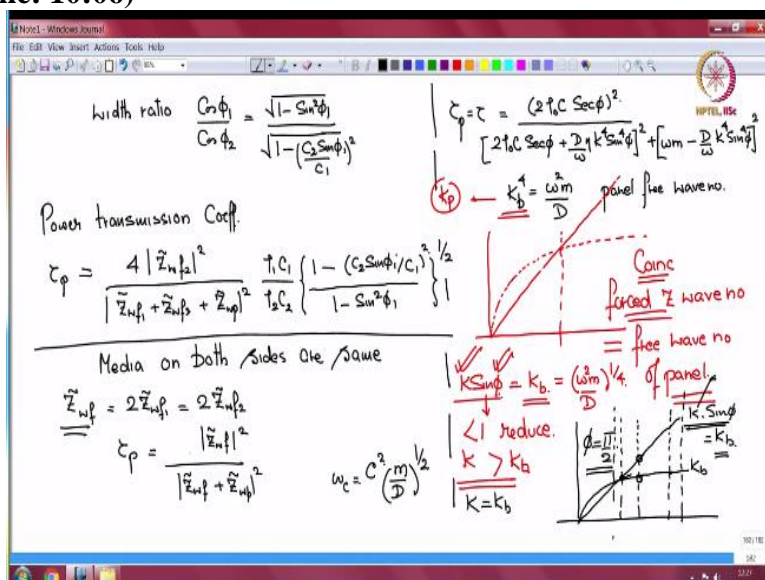 ne: 10:08)
Note1 - Windows Journal
File Edit View Insert Actions Tools Help
NPTEL, IISc
width ratio Cosϕ₁ / Cosϕ₂ = √(1 - Sin²ϕ₁) / √(1 - (C₂ Sinϕ₁ / C₁)²)
Power transmission Coeff.
τₚ = 4 |z̃wf₂|² / |z̃wf₁ + z̃wf₃ + z̃wp|² · ρ₁C₁ / ρ₂C₂ { (1 - (C₂ Sinϕ₁/C₁)²) / (1 - Sin²ϕ₁) }^1/2
Media on both sides are same
z̃wf = 2z̃wf₁ = 2z̃wf₂
τₚ = |z̃wf|² / |z̃wf + z̃wp|²
ω꜀ = C² (m/D)^1/2
τₚ = τ = (2ρ₀C Secϕ)² / [2ρ₀C Secϕ + D/ω η k⁴ Sin⁴ϕ]² + [ωm - D/ω k⁴ Sin⁴ϕ]²
kₚ ← k_b⁴ = ω²m / D panel free wave no.
Coinc
forced Z wave no
= free wave no
of panel.
K Sinϕ = k_b = (ω²m / D)^1/4
<1 reduce.
K > k_b
K = k_b
ϕ = π/2
K. Sinϕ
= k_b
k_b
182 / 182
182
12:27